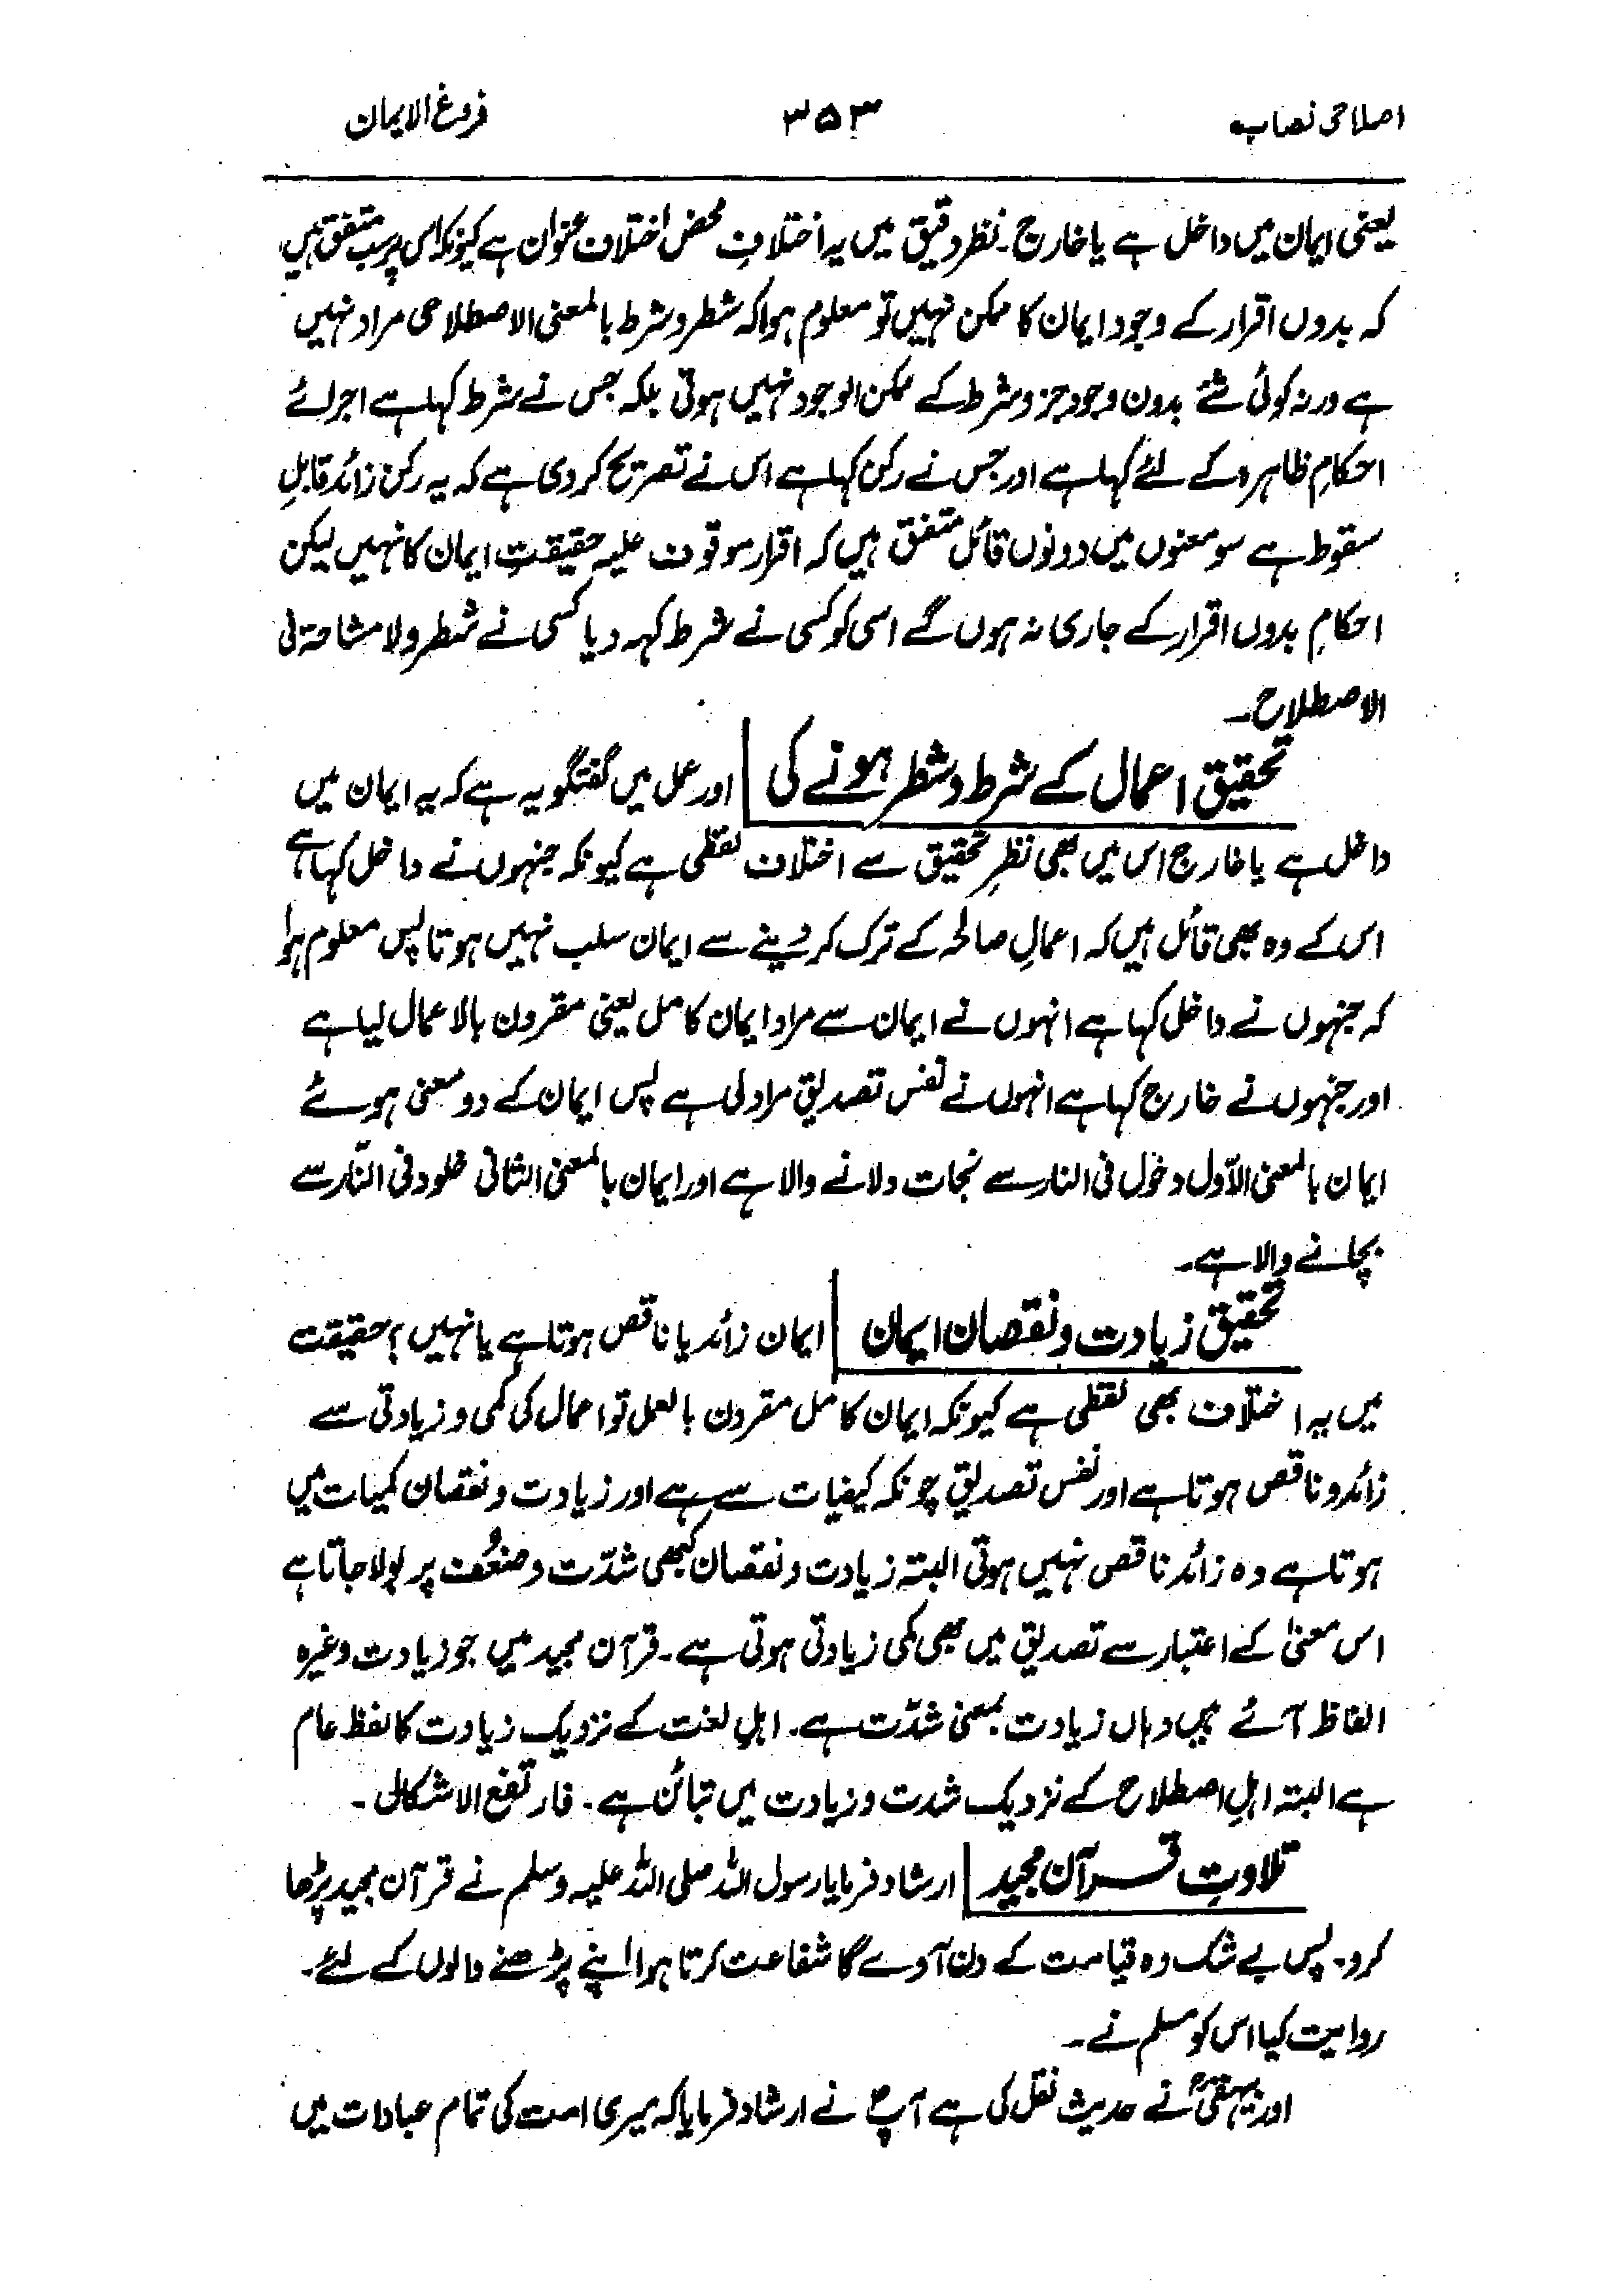 اصلاحی نصاب ۳۵۳ فروع الایمان
یعنی ایمان میں داخل ہے یا خارج۔ نظر دقیق میں یہ اختلافِ محض اختلاف عنوان ہے کیونکہ اس پر سب متفق ہیں
کہ بدوں اقرار کے وجود ایمان کا ممکن نہیں تو معلوم ہوا کہ شطر و شرط بالمعنی الاصطلاحی مراد نہیں
ہے ورنہ کوئی شئے بدون وجود جز و شرط کے ممکن الوجود نہیں ہوتی بلکہ جس نے شرط کہا ہے اجرائے
احکامِ ظاہرہ کے لئے کہا ہے اور جس نے رکن کہا ہے اس نے تصریح کر دی ہے کہ یہ رکن زائد قابلِ
سقوط ہے سو معنوں میں دونوں قائل متفق ہیں کہ اقرار موقوف علیہ حقیقتِ ایمان کا نہیں لیکن
احکامِ بدوں اقرار کے جاری نہ ہوں گے اسی کو کسی نے شرط کہہ دیا کسی نے شطر ولا مشاحۃ فی
الاصطلاح۔
تحقیق اعمال کے شرط و شطر ہونے کی اور عمل میں گفتگو یہ ہے کہ یہ ایمان میں
داخل ہے یا خارج اس میں بھی نظرِ تحقیق سے اختلاف لفظی ہے کیونکہ جنہوں نے داخل کہا ہے
اس کے وہ بھی قائل ہیں کہ اعمالِ صالحہ کے ترک کر دینے سے ایمان سلب نہیں ہوتا پس معلوم ہوا
کہ جنہوں نے داخل کہا ہے انہوں نے ایمان سے مراد ایمان کامل یعنی مقرون بالاعمال لیا ہے
اور جنہوں نے خارج کہا ہے انہوں نے نفس تصدیق مراد لی ہے پس ایمان کے دو معنی ہوئے
ایمان بالمعنی الاوّل دخول فی النار سے نجات دلانے والا ہے اور ایمان بالمعنی الثانی خلود فی النّار سے
بچانے والا ہے۔
تحقیق زیادت و نقصان ایمان ایمان زائد یا ناقص ہوتا ہے یا نہیں؟ حقیقت
میں یہ اختلاف بھی لفظی ہے کیونکہ ایمان کامل مقرون بالعمل تو اعمال کی کمی و زیادتی سے
زائد و ناقص ہوتا ہے اور نفس تصدیق چونکہ کیفیات سے ہے اور زیادت و نقصان کمیات میں
ہوتا ہے وہ زائد ناقص نہیں ہوتی البتہ زیادت و نقصان کبھی شدّت و ضعُف پر بولا جاتا ہے
اس معنیٰ کے اعتبار سے تصدیق میں بھی کمی زیادتی ہوتی ہے۔ قرآن مجید میں جو زیادت وغیرہ
الفاظ آئے ہیں وہاں زیادت بمعنی شدّت ہے۔ اہلِ لغت کے نزدیک زیادت کا لفظ عام
ہے البتہ اہلِ اصطلاح کے نزدیک شدت و زیادت میں تبائن ہے۔ فارتفع الاشکال۔
تلاوتِ قرآن مجید ارشاد فرمایا رسول اللہ صلی اللہ علیہ وسلم نے قرآن مجید پڑھا
کرو۔ پس بے شک وہ قیامت کے دن آوے گا شفاعت کرتا ہوا اپنے پڑھنے والوں کے لئے۔
روایت کیا اس کو مسلم نے۔
اور بیہقیؒ نے حدیث نقل کی ہے آپؐ نے ارشاد فرمایا کہ میری امت کی تمام عبادات میں